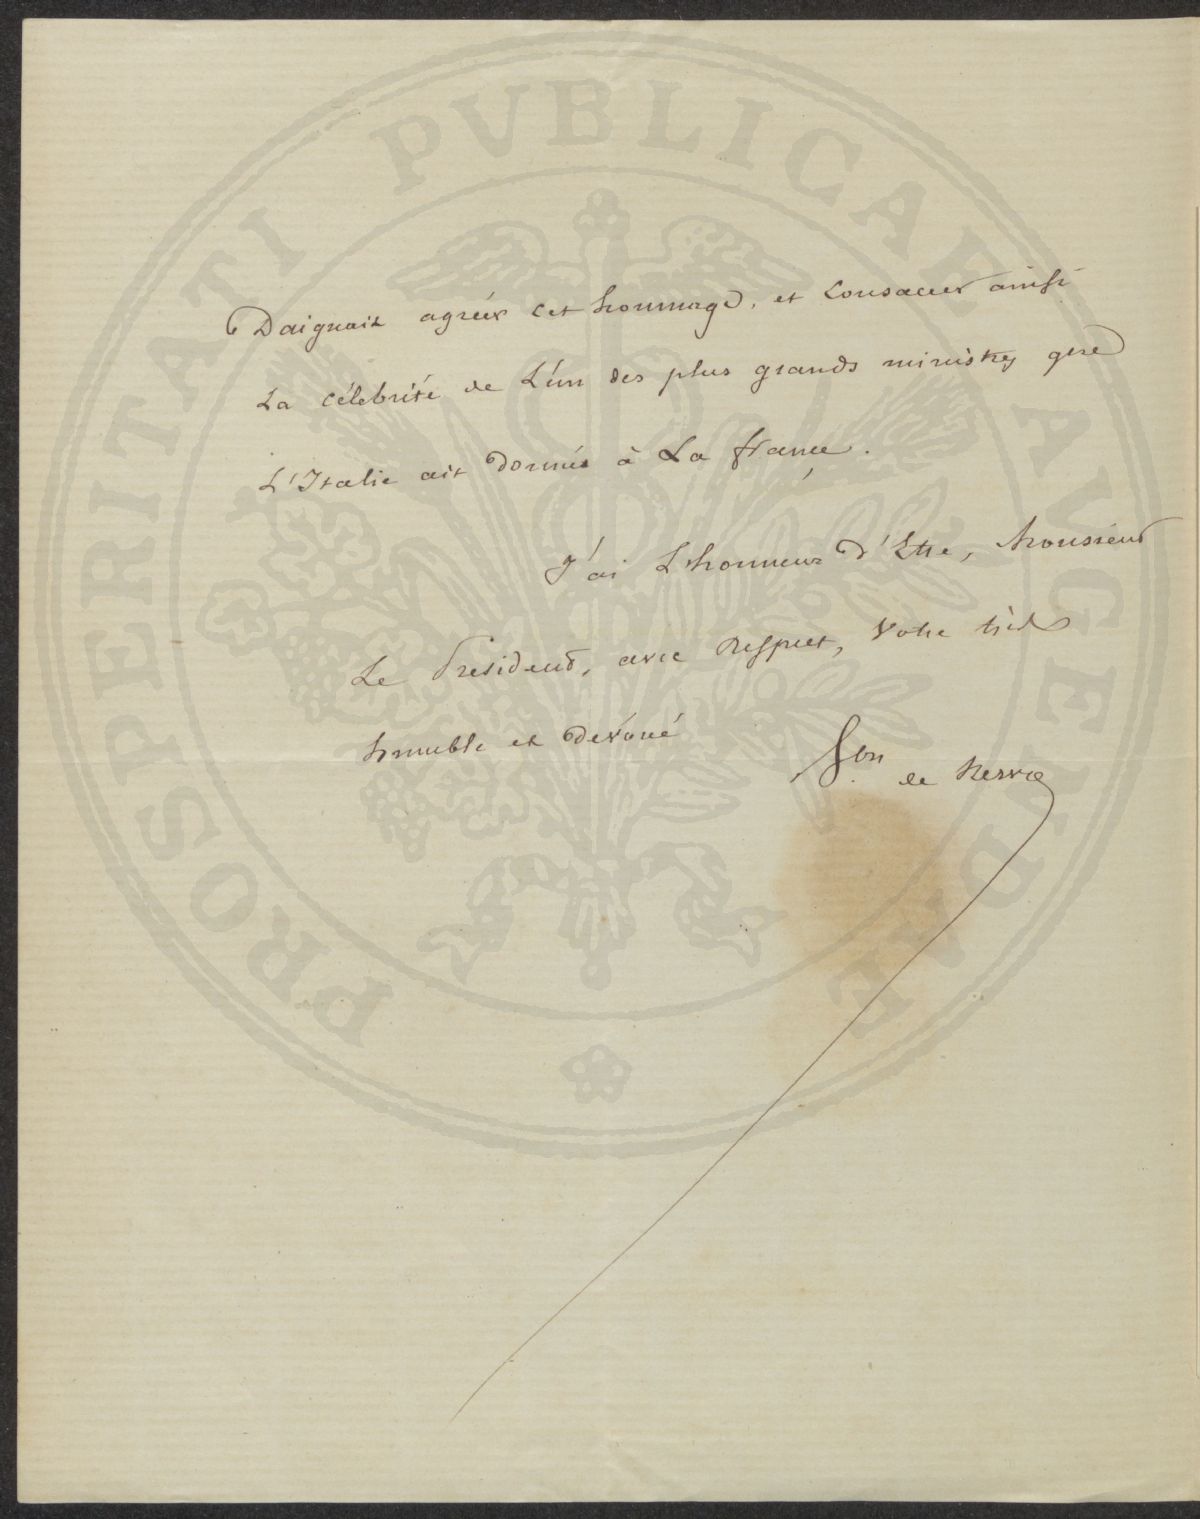 Daignait agréer cet hommage, et Consacrer ainsi
La célebrité de L'un des plus grands ministres que
L'Italie ait donnés à La france.
J'ai L'honneur d'Etre, Monsieur
Le President, avec Respect, Votre très
humble et dévoué
de
PROSPERITATI PVBLICAE AVGENDAE